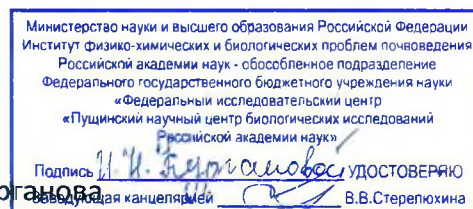 Министерство науки и высшего образования Российской Федерации
Институт физико-химических и биологических проблем почвоведения
Российской академии наук - обособленное подразделение
Федерального государственного бюджетного учреждения науки
«Федеральный исследовательский центр
«Пущинский научный центр биологических исследований
Российской академии наук»
Подпись И. Н. Кургановой УДОСТОВЕРЯЮ
рганова
Заведующая канцелярией В.В.Стерелюхина